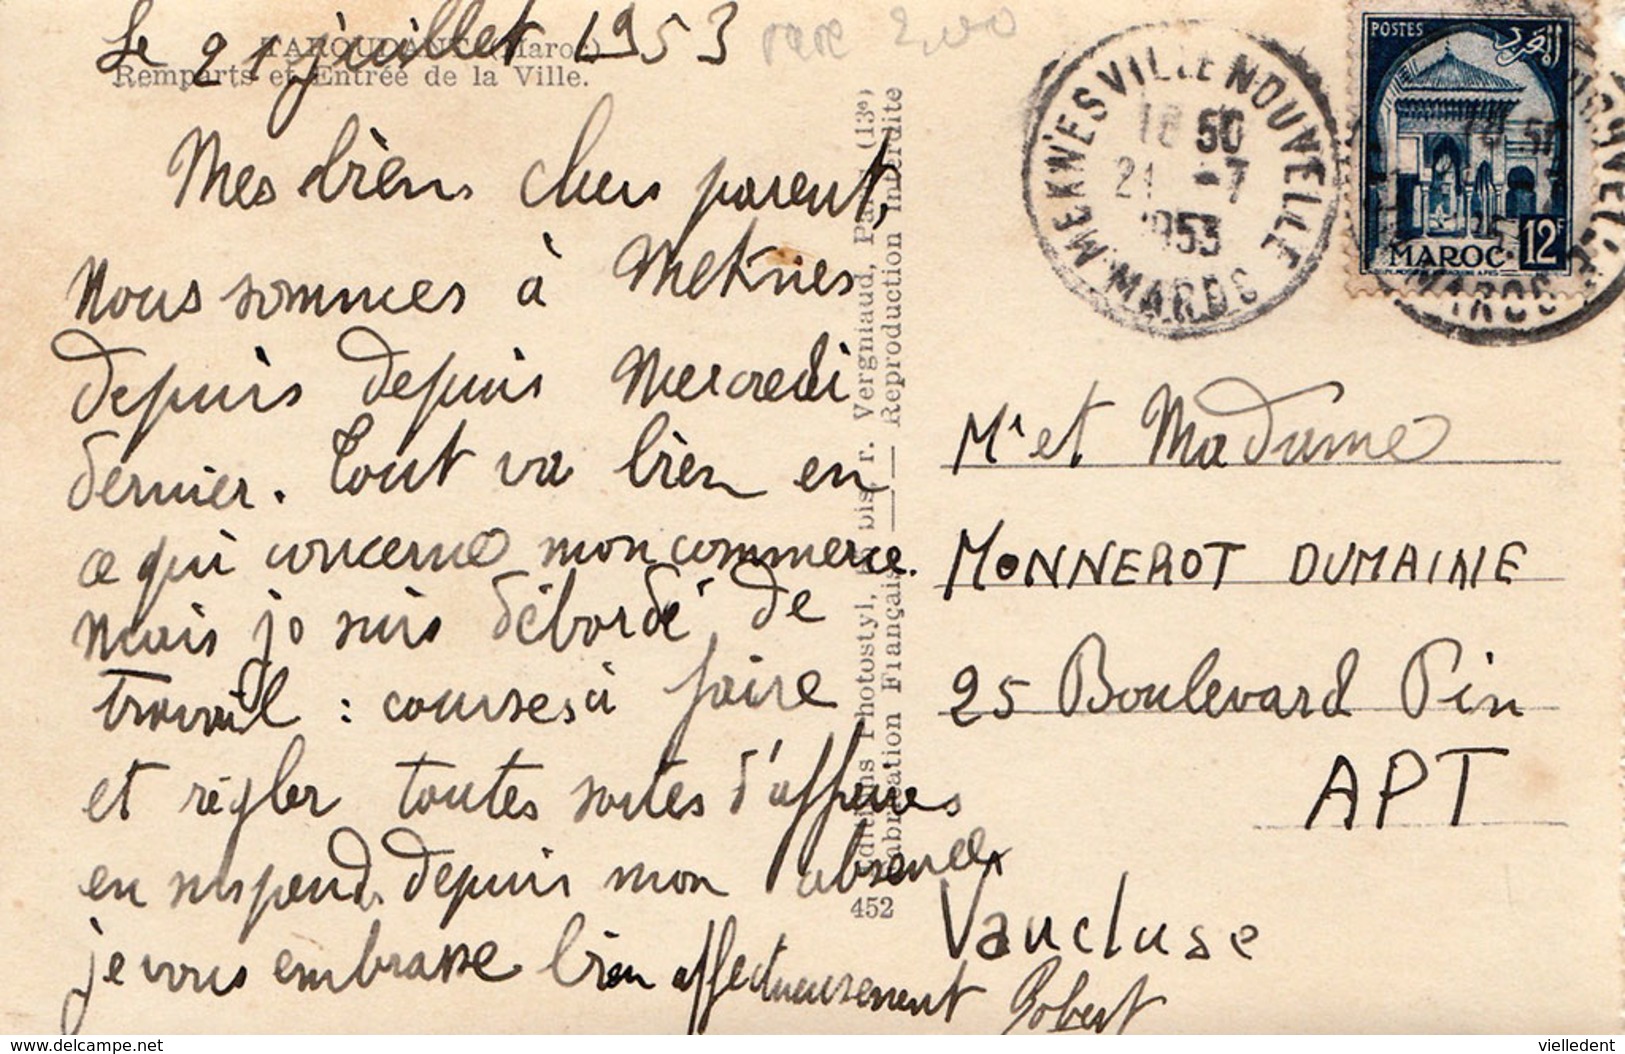 Le 21 juillet 1953
rare 2,00
TAROUDANT (Maroc)
Remparts et Entrée de la Ville.
Mes biens chers parents,
Nous sommes à Meknes
depuis depuis Mercredi
dernier. Tout va bien en
ce qui concerne mon commerce.
Mais je suis débordé de
travail : courses à faire
et règler toutes sortes d'affaires
en suspend depuis mon absence
je vous embrasse bien affectueusement
Robert
r. Vergniaud, Paris (13e)
Reproduction interdite
452
MEKNES VILLE NOUVELLE
18 50
21 -7
1953
MAROC
POSTES
المغرب
MAROC 12F
Mr et Madame
MONNEROT DUMAINE
25 Boulevard Pin
APT
Vaucluse
www.delcampe.net
vielledent